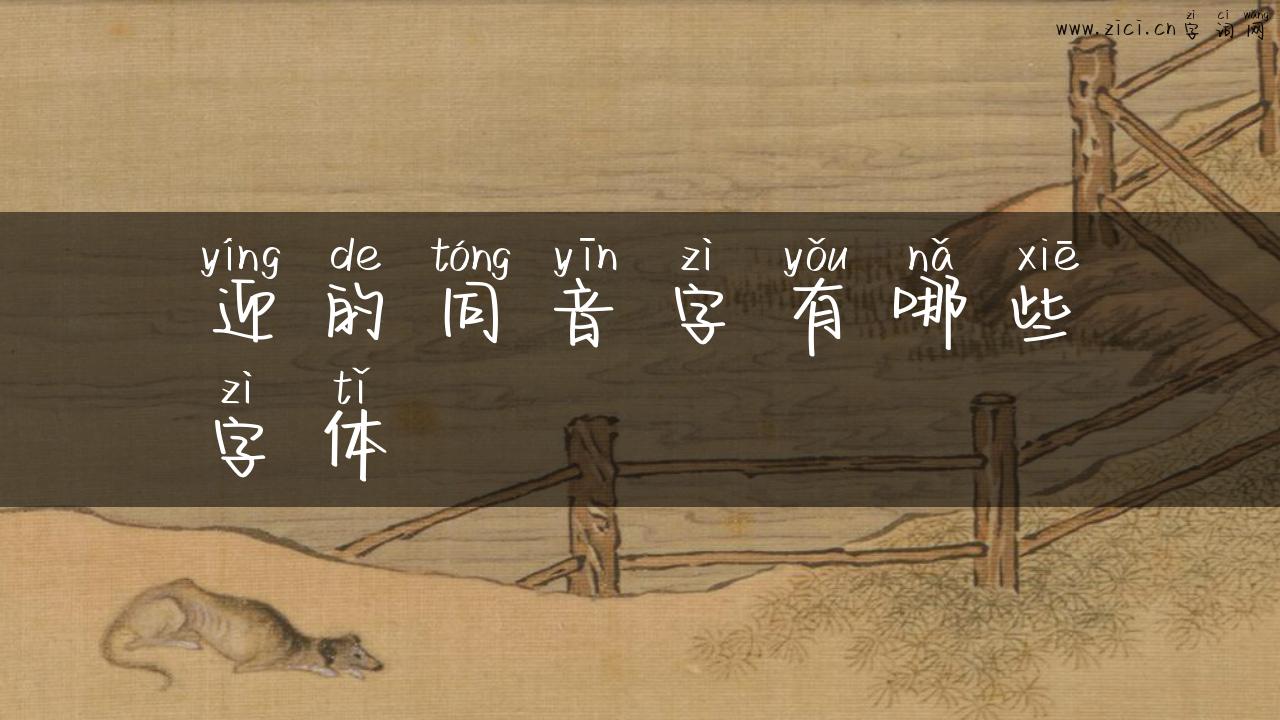 zì cí wǎng
www.zici.cn 字词网
yíng de tóng yīn zì yǒu nǎ xiē
迎的同音字有哪些
zì tǐ
字体